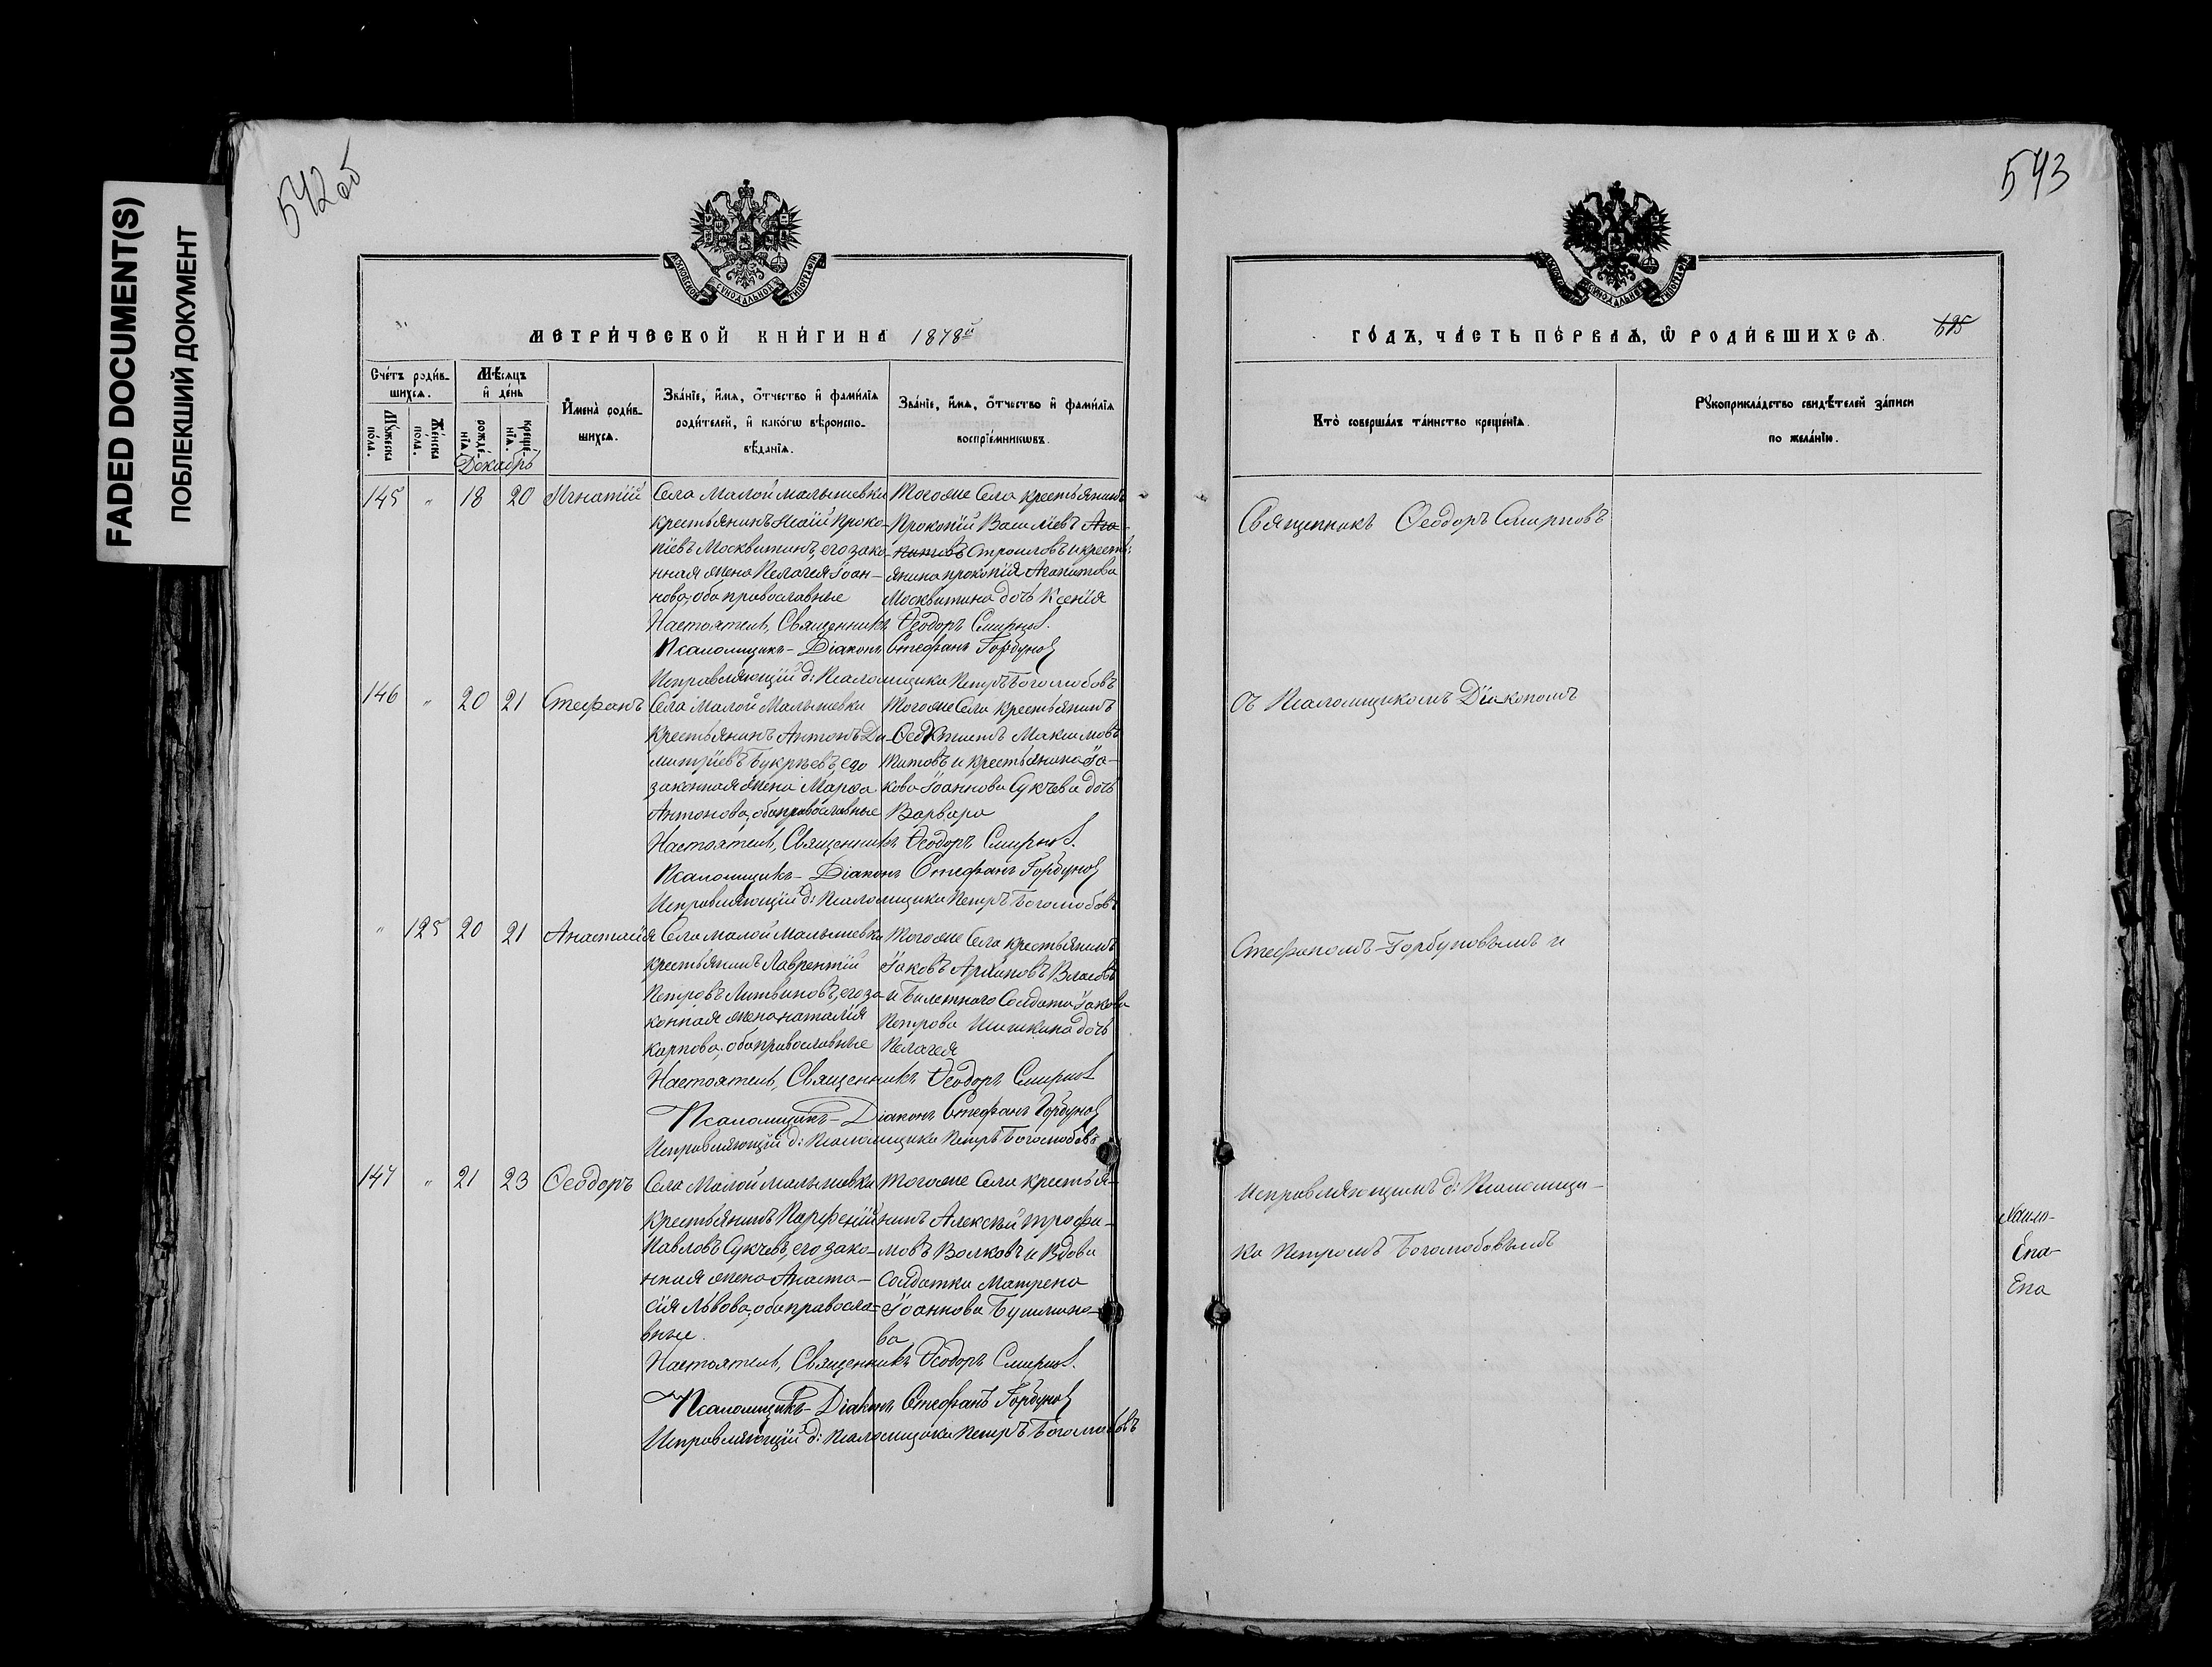 FADED DOCUMENT(S)
ПОБЛЕКШИЙ ДОКУМЕНТ
542 об
МОСКОВСКОЙ СѴНОДАЛЬНОЙ ТИПОГРАФІИ
МЕТРИ́ЧЕСКОЙ КНИ́ГИ НА 1878й
Сче́тъ роди́в-
шихся.
Мѣ́сяцъ
и҆ де́нь
И҆мена̀ роди́в-
шихся.
Зва́нїе, и҆́мя, ѻ҆́тчество и҆ фами́лїя
роди́телей, и҆ како́гѡ вѣроиспо-
вѣ́данїя.
Зва́нїе, и҆́мя, ѻ҆́тчество и҆ фами́лїя
воспрїе́мникѡвъ.
Мꙋ́жеска по́ла.
Же́нска по́ла.
рожде́-нїѧ.
креще́-нїѧ.
Декабрь
145 " 18 20 Игнатій
Села Малой малышевки
крестьянинъ Исаій Проко-
піевъ Москвитинъ, его зако-
нная жена Пелагея Іоан-
нова, оба православные
Тогоже Села крестьянинъ
Прокопій Василіевъ Ага-
питовъ Строиловъ и крестъ-
янина прокопія Агапитова
Москвитина дочь Ксенія
Настоятель, Священникъ Ѳеодоръ Смирнов.
Псаломщикъ - Діаконъ Стефанъ Горбунов
Исправляющій д: Псаломщика Петръ Боголюбовъ
146 " 20 21 Стефанъ
Села Малой Малышевки
Крестьянинъ Антонъ Ди-
митріевъ Букреевъ, его
законная жена Марѳа
Антонова, оба православные
Тогоже Села крестьянинъ
Ѳеоктистъ Максимовъ
Титовъ и крестьянина Іа-
кова Іоаннова Сукчева дочь
Варвара
Настоятель, Священникъ Ѳеодоръ Смирнов.
Псаломщикъ - Діаконъ Стефанъ Горбунов
Исправляющій д: Псаломщика Петръ Боголюбовъ
" 125 20 21 Анастасія
Села Малой Малышевки
крестьянинъ Лаврентій
Петровъ Литвиновъ, его за-
конная жена наталія
карпова, оба православные
Тогоже Села крестьянинъ
Іаковъ Архиповъ Власовъ
и Билетнаго Солдата Іакова
Петрова Шишкина дочь
Пелагея
Настоятель, Священникъ Ѳеодоръ Смирнов
Псаломщикъ - Діаконъ Стефанъ Горбунов
Исправляющій д: Псаломщика Петръ Боголюбовъ
147 " 21 23 Ѳеодоръ
Села Малой малышевки
крестьянинъ Парѳеній
Павловъ Сукчевъ, его зако-
нная жена Анаста-
сія Львова, оба правосла-
вные.
Тогоже Села крестья-
нинъ Алексѣй трофи-
мовъ Волковъ и Вдова
Солдатка Матрена
Іоаннова Бушмано-
ва
Настоятель, Священникъ Ѳеодоръ Смирнов.
Псаломщикъ - Діаконъ Стефанъ Горбунов
Исправляющій д: Псаломщика Петръ Боголюбовъ
543
МОСКОВСКОЙ СѴНОДАЛЬНОЙ ТИПОГРАФІИ
ГО́ДЪ, ЧА́СТЬ ПЕ́РВАѦ, Ѡ҆ РОДИ́ВШИХСѦ.
Кто̀ соверша́лъ та́инство креще́нїѧ.
Рꙋкоприкла́дство свидѣ́телей за́писи
по жела́нїю.
Священникъ Ѳеодоръ Смирновъ
съ Псаломщикомъ Діакономъ
Стефаномъ Горбуновымъ и
Исправляющимъ д: Псаломщи-
ка Петромъ Боголюбовымъ